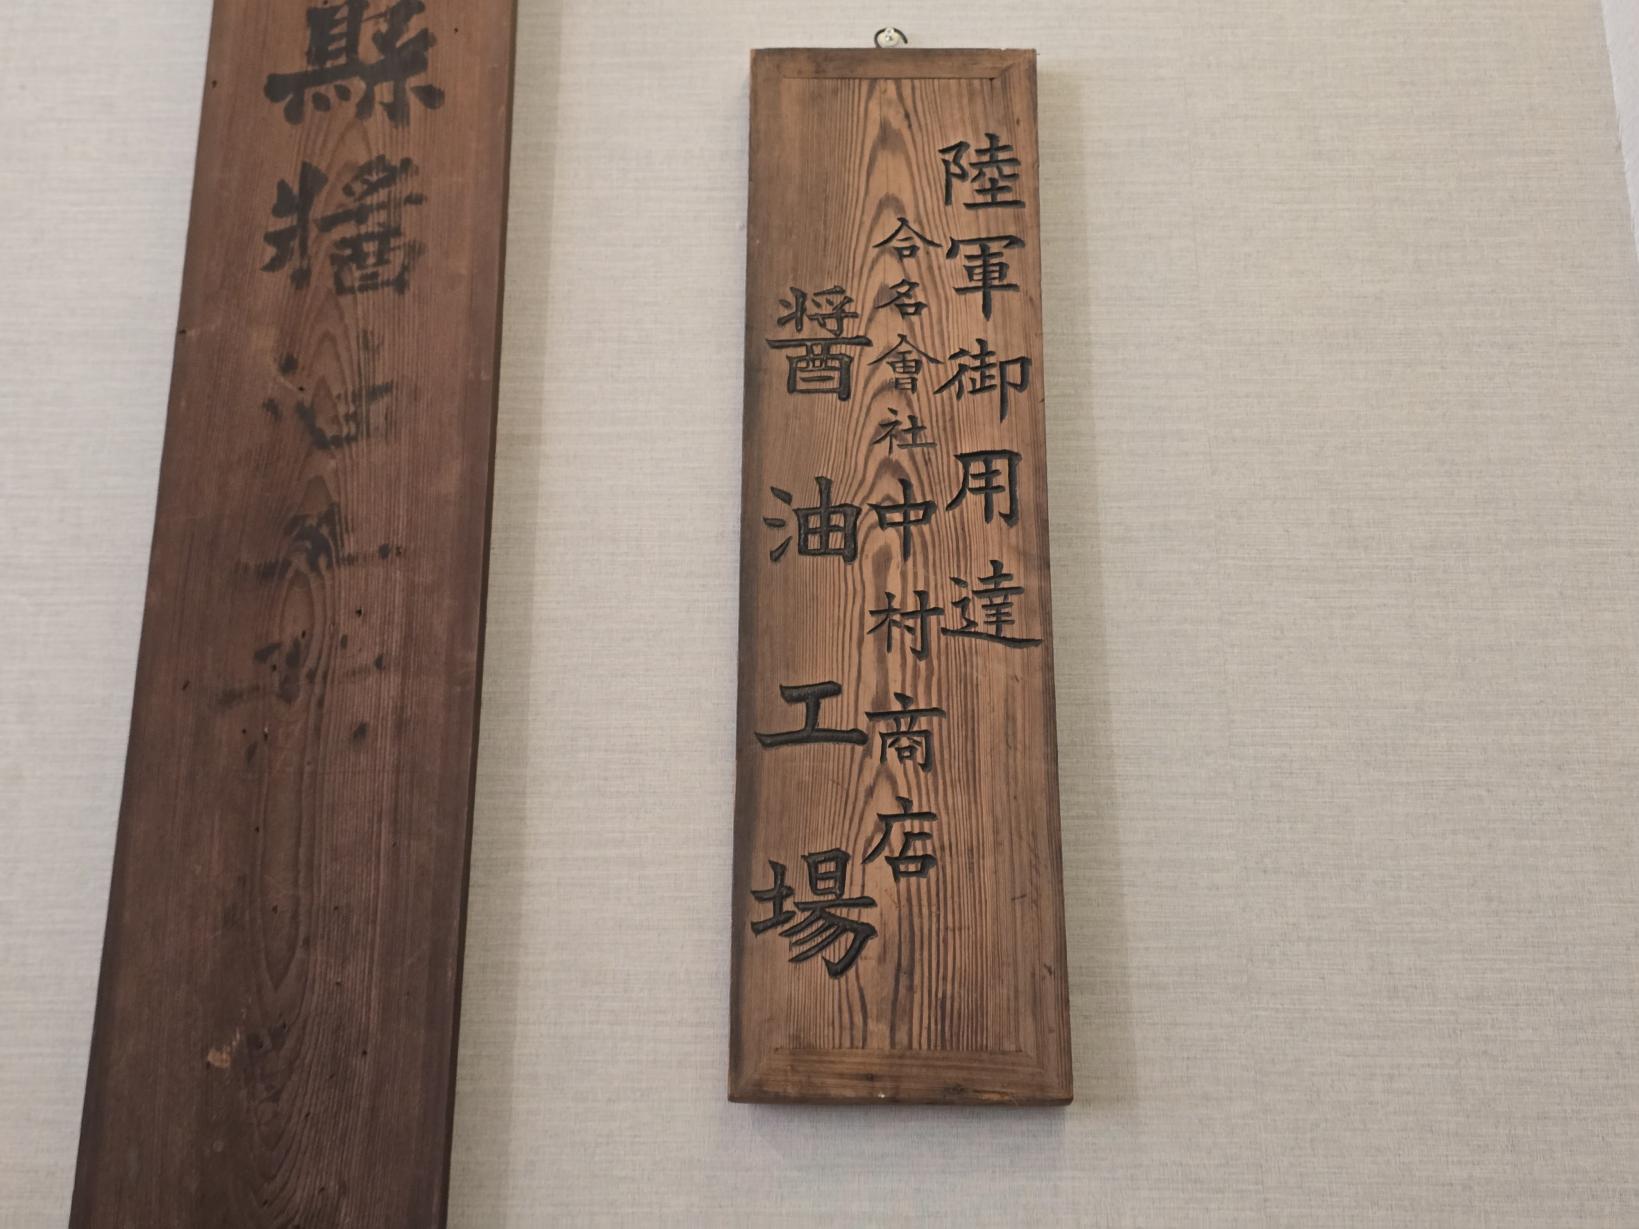 陸軍御用達
合名會社中村商店
醤油工場
縣醬油